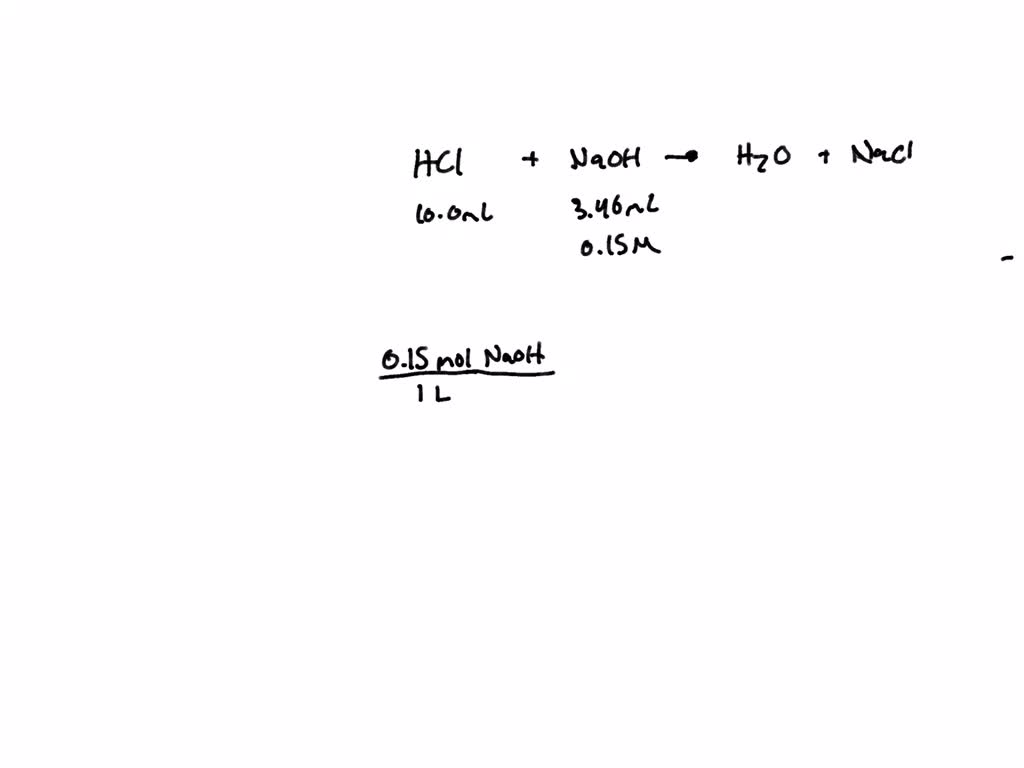 HCl + NaOH → H₂O + NaCl
10.0mL 3.46mL
0.15M
0.15 mol NaOH
1 L